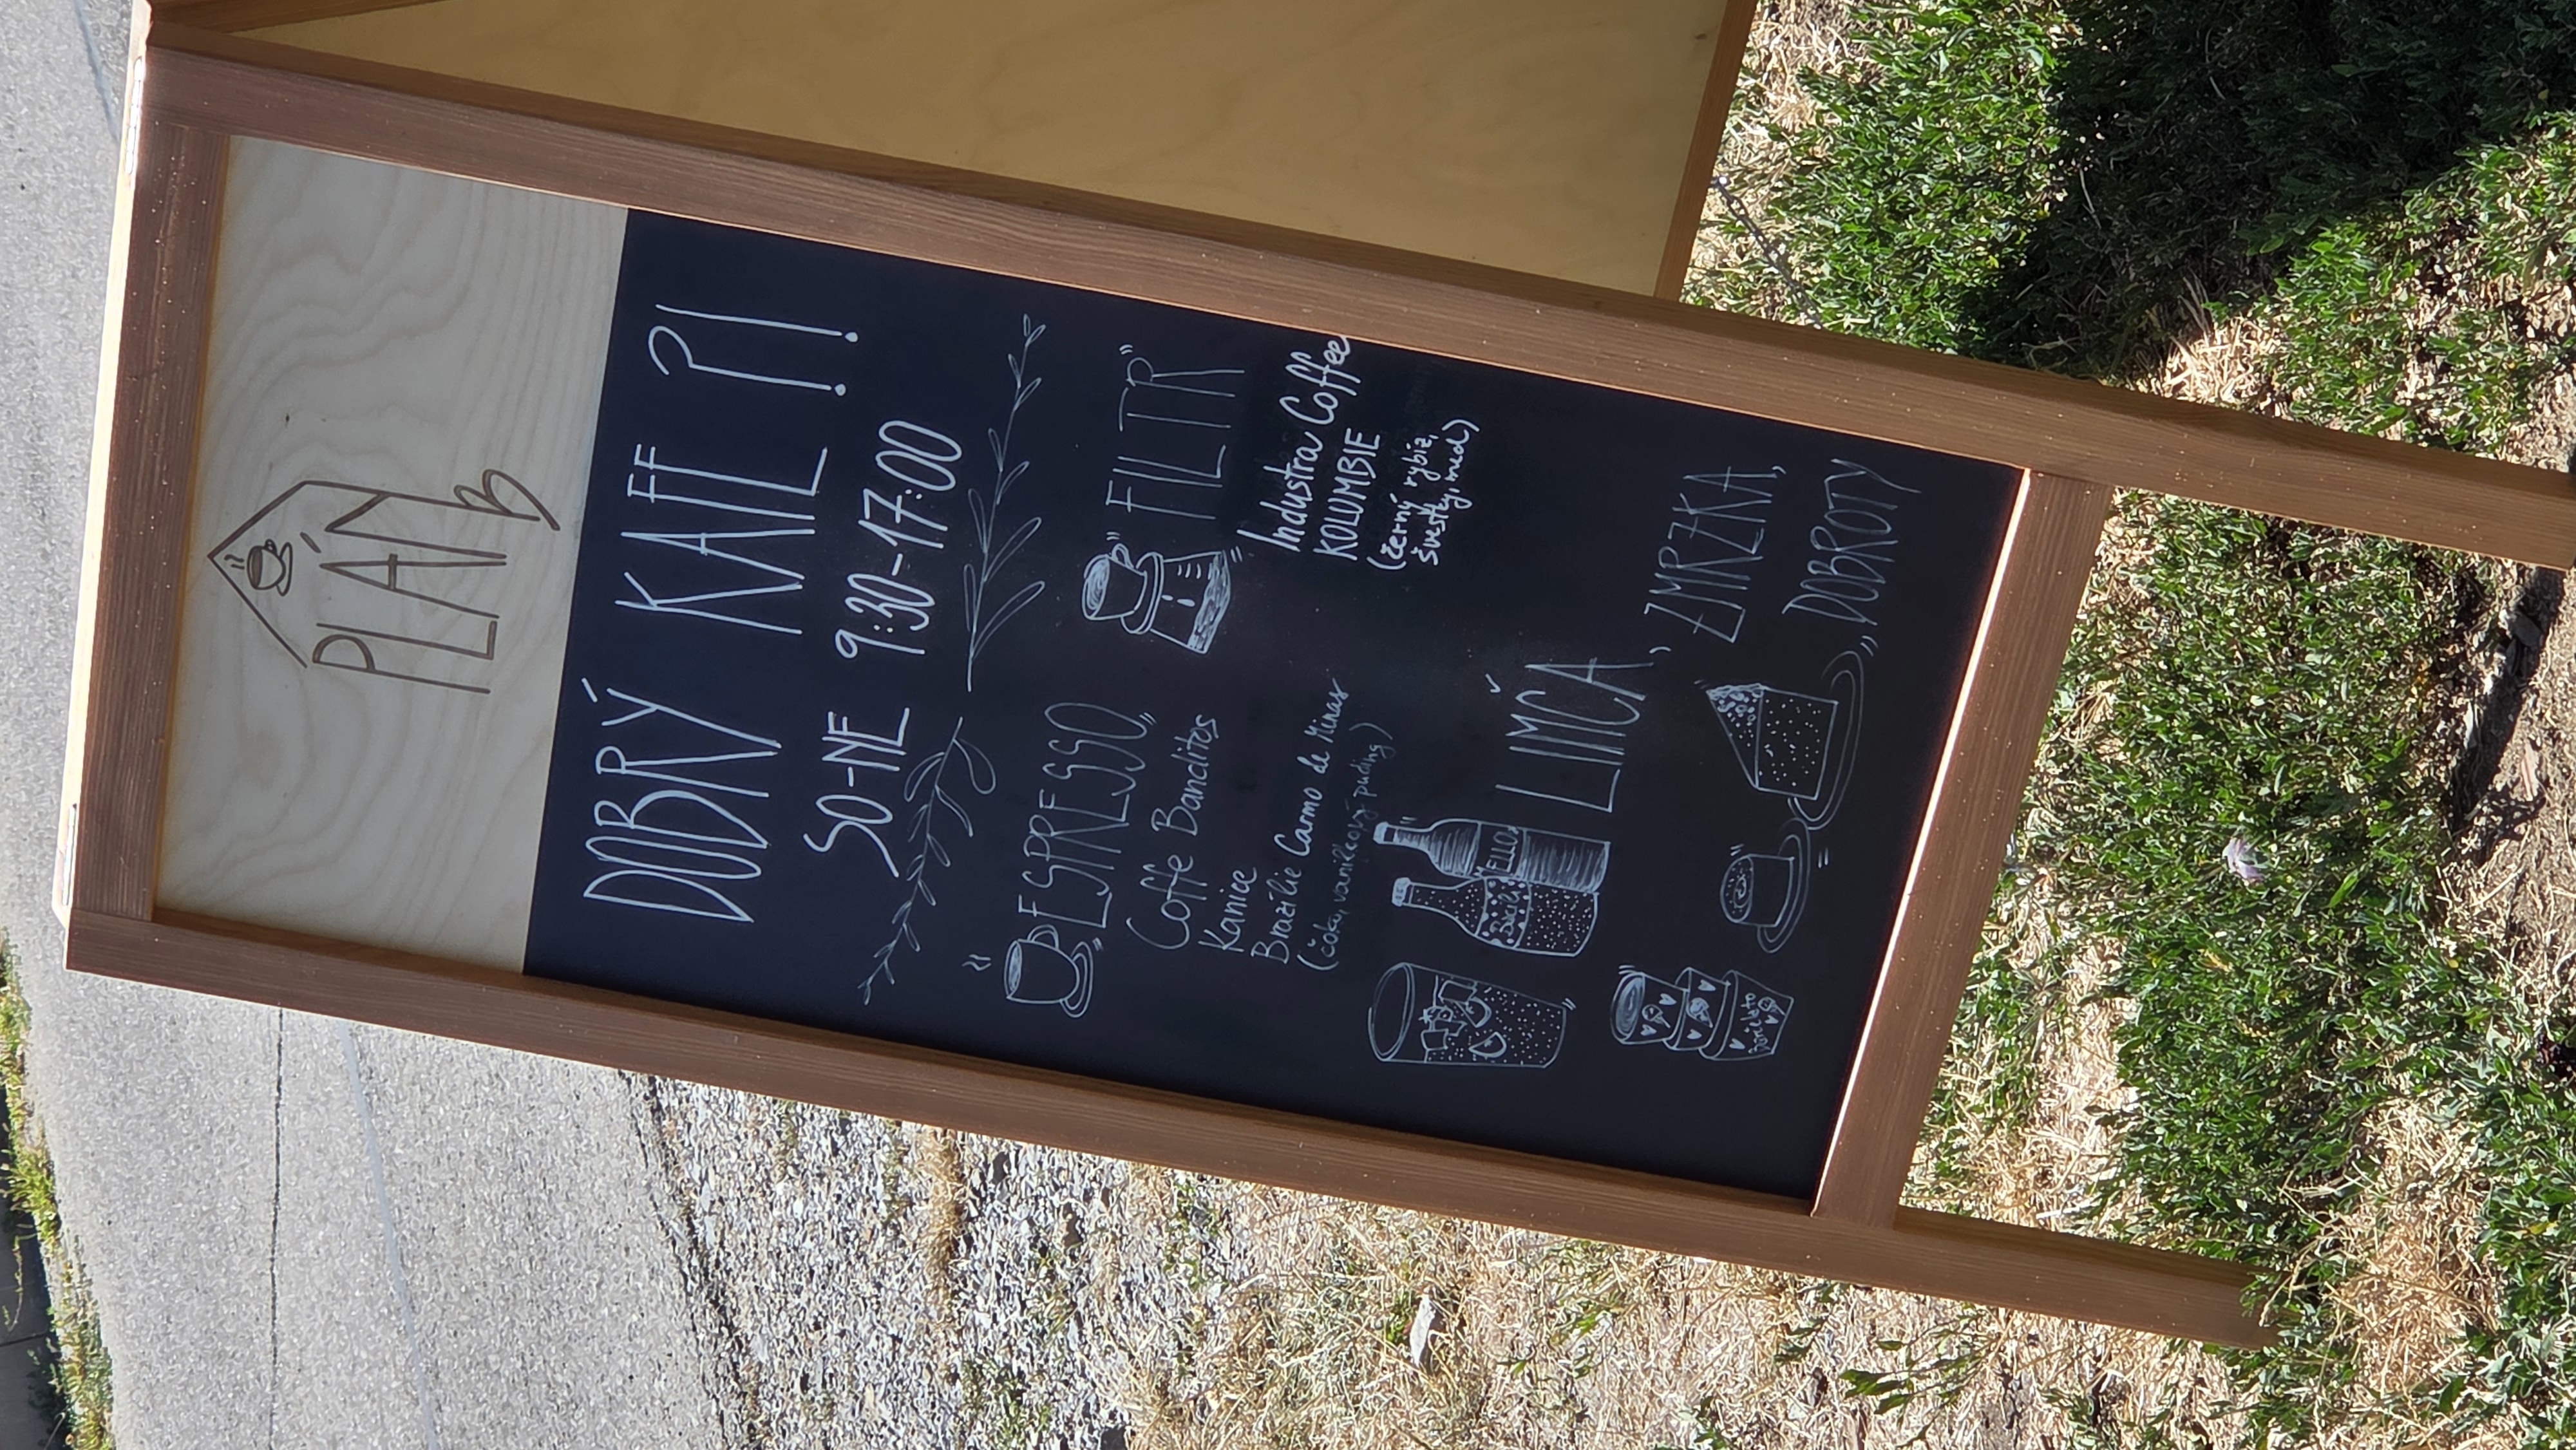 PLÁN
B
DOBRÝ KAFE?!
SO-NE 9:30-17:00
ESPRESSO
Coffe Banditos
Kanice
Brazílie Carmo de Minas
(čoko, vanilkový puding)
FILTR
Industra Coffee
KOLUMBIE
(černý rybíz,
švestky, med)
LIMČA, ZMRZKA,
DOBROTY